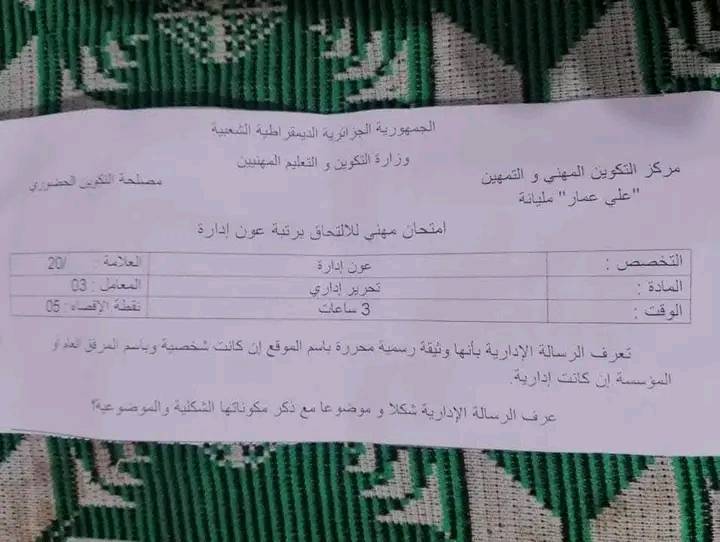 الجمهورية الجزائرية الديمقراطية الشعبية
وزارة التكوين و التعليم المهنيين
مركز التكوين المهني و التمهين
"علي عمار" مليانة
مصلحة التكوين الحضوري
امتحان مهني للالتحاق برتبة عون إدارة
التخصص : عون إدارة العلامة : /20
المادة : تحرير إداري المعامل : 03
الوقت : 3 ساعات نقطة الإقصاء : 05
تعرف الرسالة الإدارية بأنها وثيقة رسمية محررة باسم الموقع إن كانت شخصية وباسم المرفق العام او
المؤسسة إن كانت إدارية.
عرف الرسالة الإدارية شكلا و موضوعا مع ذكر مكوناتها الشكلية والموضوعية؟